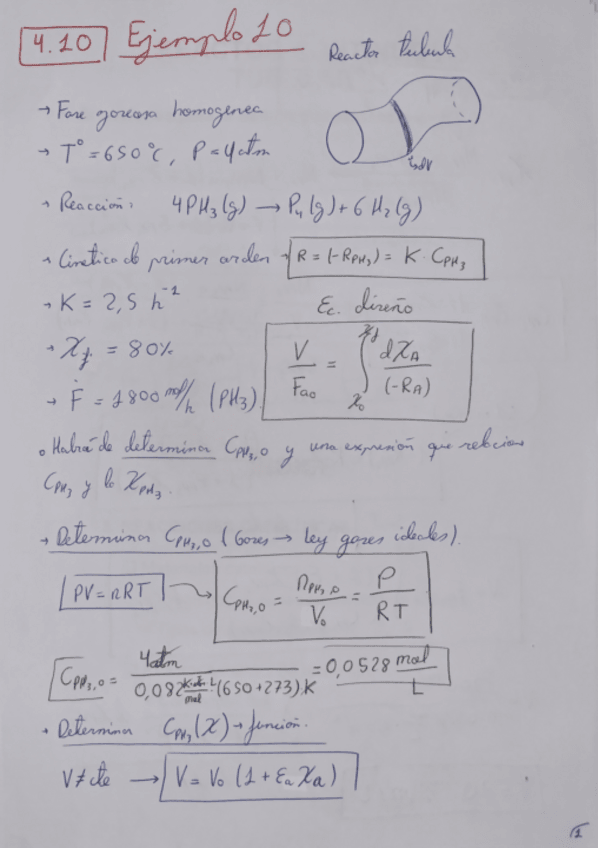 4.10 Ejemplo 10
Reactor tubular
→ Fase gaseosa homogenea
→ T° = 650°C, P = 4 atm
dV
→ Reacción: 4PH₃(g) → P₄(g) + 6H₂(g)
→ Cinetica de primer orden → R = (-R_PH₃) = K · C_PH₃
→ K = 2,5 h⁻¹
Ec. diseño
→ X_f = 80%
V/F_ao = ∫_{X_0}^{X_f} dX_A/(-R_A)
→ Ḟ = 1800 mol/h (PH₃)
o Habrá de determinar C_PH₃,0 y una expresión que relacione
C_PH₃ y la X_PH₃.
→ Determinar C_PH₃,0 (Gases → Ley gases ideales).
PV = nRT → C_PH₃,0 = n_PH₃,0/V₀ = P/RT
C_PH₃,0 = 4atm/(0,082 (650+273)·K) = 0,0528 mol/L
→ Determinar C_PH₃(X) → función.
V≠cte → V = V₀ (1 + ε_a X_a)
1